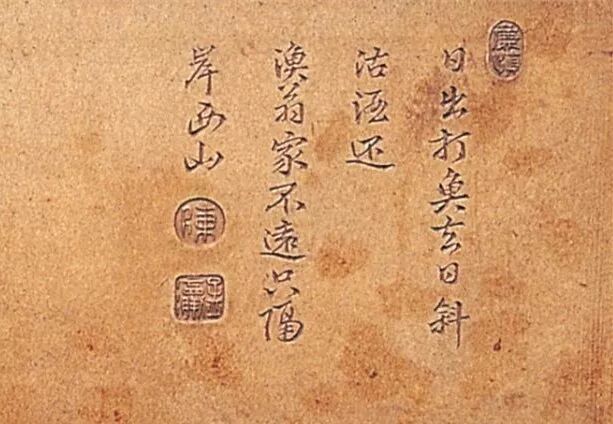 日出打魚去日斜
沽酒还
漁翁家不遠只隔
岸西山
陳